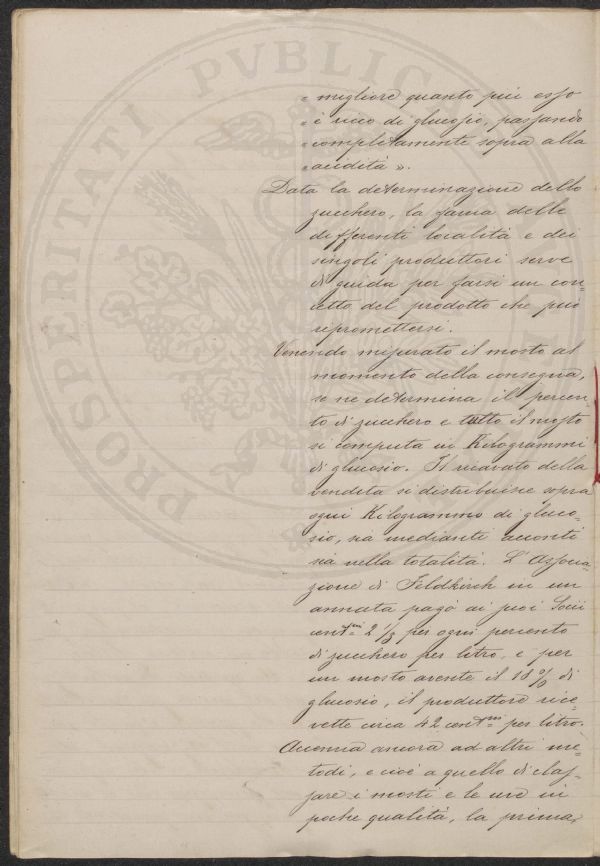 PROSPERITATI PVBLICAE
" migliore quanto più esso
" è ricco di glucosio, passando
" completamente sopra alla
" acidità ».
Data la determinazione dello
zucchero, la fama delle
differenti località e dei
singoli produttori serve
di guida per farsi un con=
cetto del prodotto che può
ripromettersi.
Venendo misurato il mosto al
momento della consegna,
se ne determina il percen=
to di zucchero e tutto il mosto
si computa in Kilogrammi
di glucosio. Il ricavato della
vendita si distribuisce sopra
ogni Kilogrammo di gluco=
sio, sia mediante acconti
sia nella totalità. L'Associa=
zione di Feldkirch in un
annata pagò ai suoi Socii
centmi 2 1/3 per ogni percento
di zucchero per litro, e per
un mosto avente il 18 % di
glucosio, il produttore rice=
vette circa 42 centmi per litro.
Accenna ancora ad altri me=
todi, e cioè a quello di clas=
sare i mosti e le uve in
poche qualità, la prima,